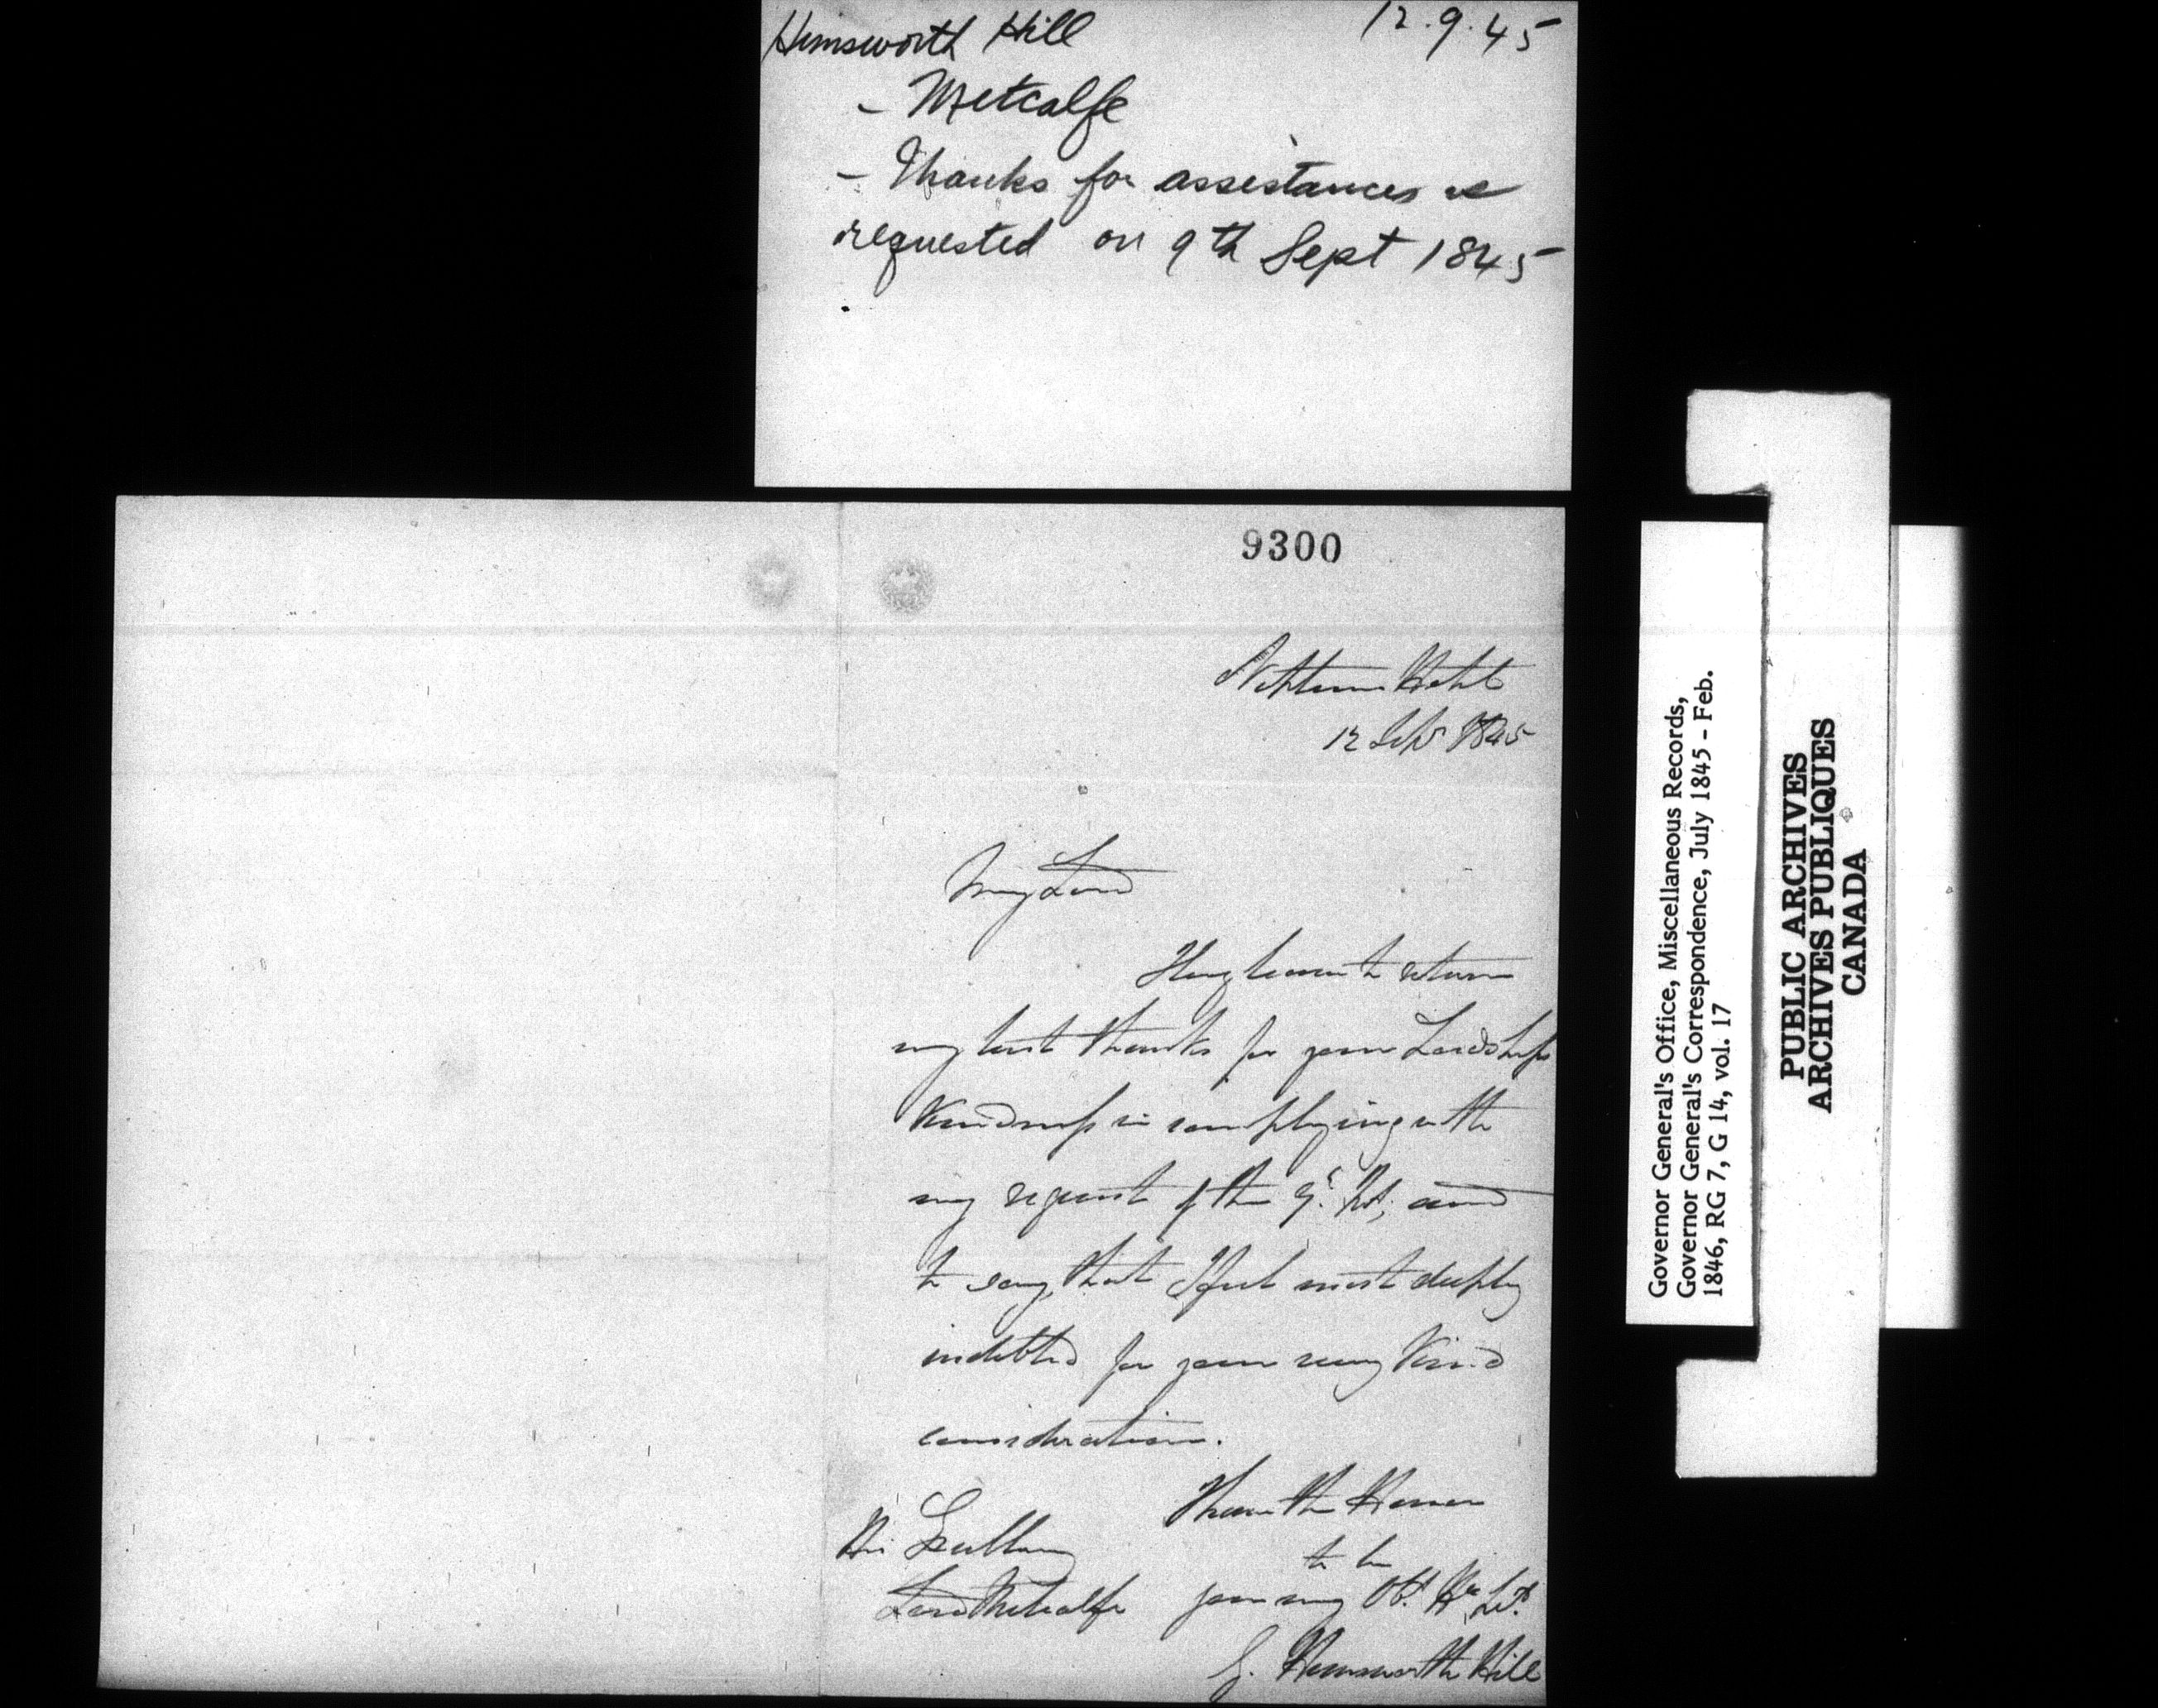 Hemsworth Hill 12.9.45
- Metcalfe
- Thanks for assistances as
requested on 9th Sept 1845
9300
12 Sept 1845
My Lord
I beg leave to return
my best thanks for your Lordships
Kindness in complying with
my request of the 9th Inst; and
to say, that I feel most deeply
indebted for your very Kind
consideration.
I have the Honor
to be
His Excellency
Lord Metcalfe your very Obt. Hu. Svt.
G. Hemsworth Hill
Governor General's Office, Miscellaneous Records,
Governor General's Correspondence, July 1845 - Feb.
1846, RG 7, G 14, vol. 17
PUBLIC ARCHIVES
ARCHIVES PUBLIQUES
CANADA